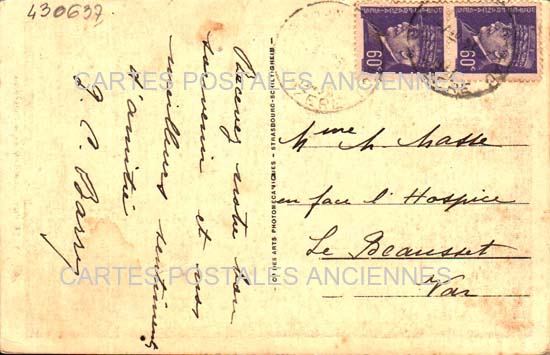 430637
Recevez notre bon
souvenir et nos
meilleurs sentiments
d'amitié
Barre
CIE DES ARTS PHOTOMÉCANIQUES - STRASBOURG-SCHILTIGHEIM
60
60
Mme M. Masse
en face l'Hospice
Le Beausset
Var
CARTES POSTALES ANCIENNES
CARTES POSTALES ANCIENNES